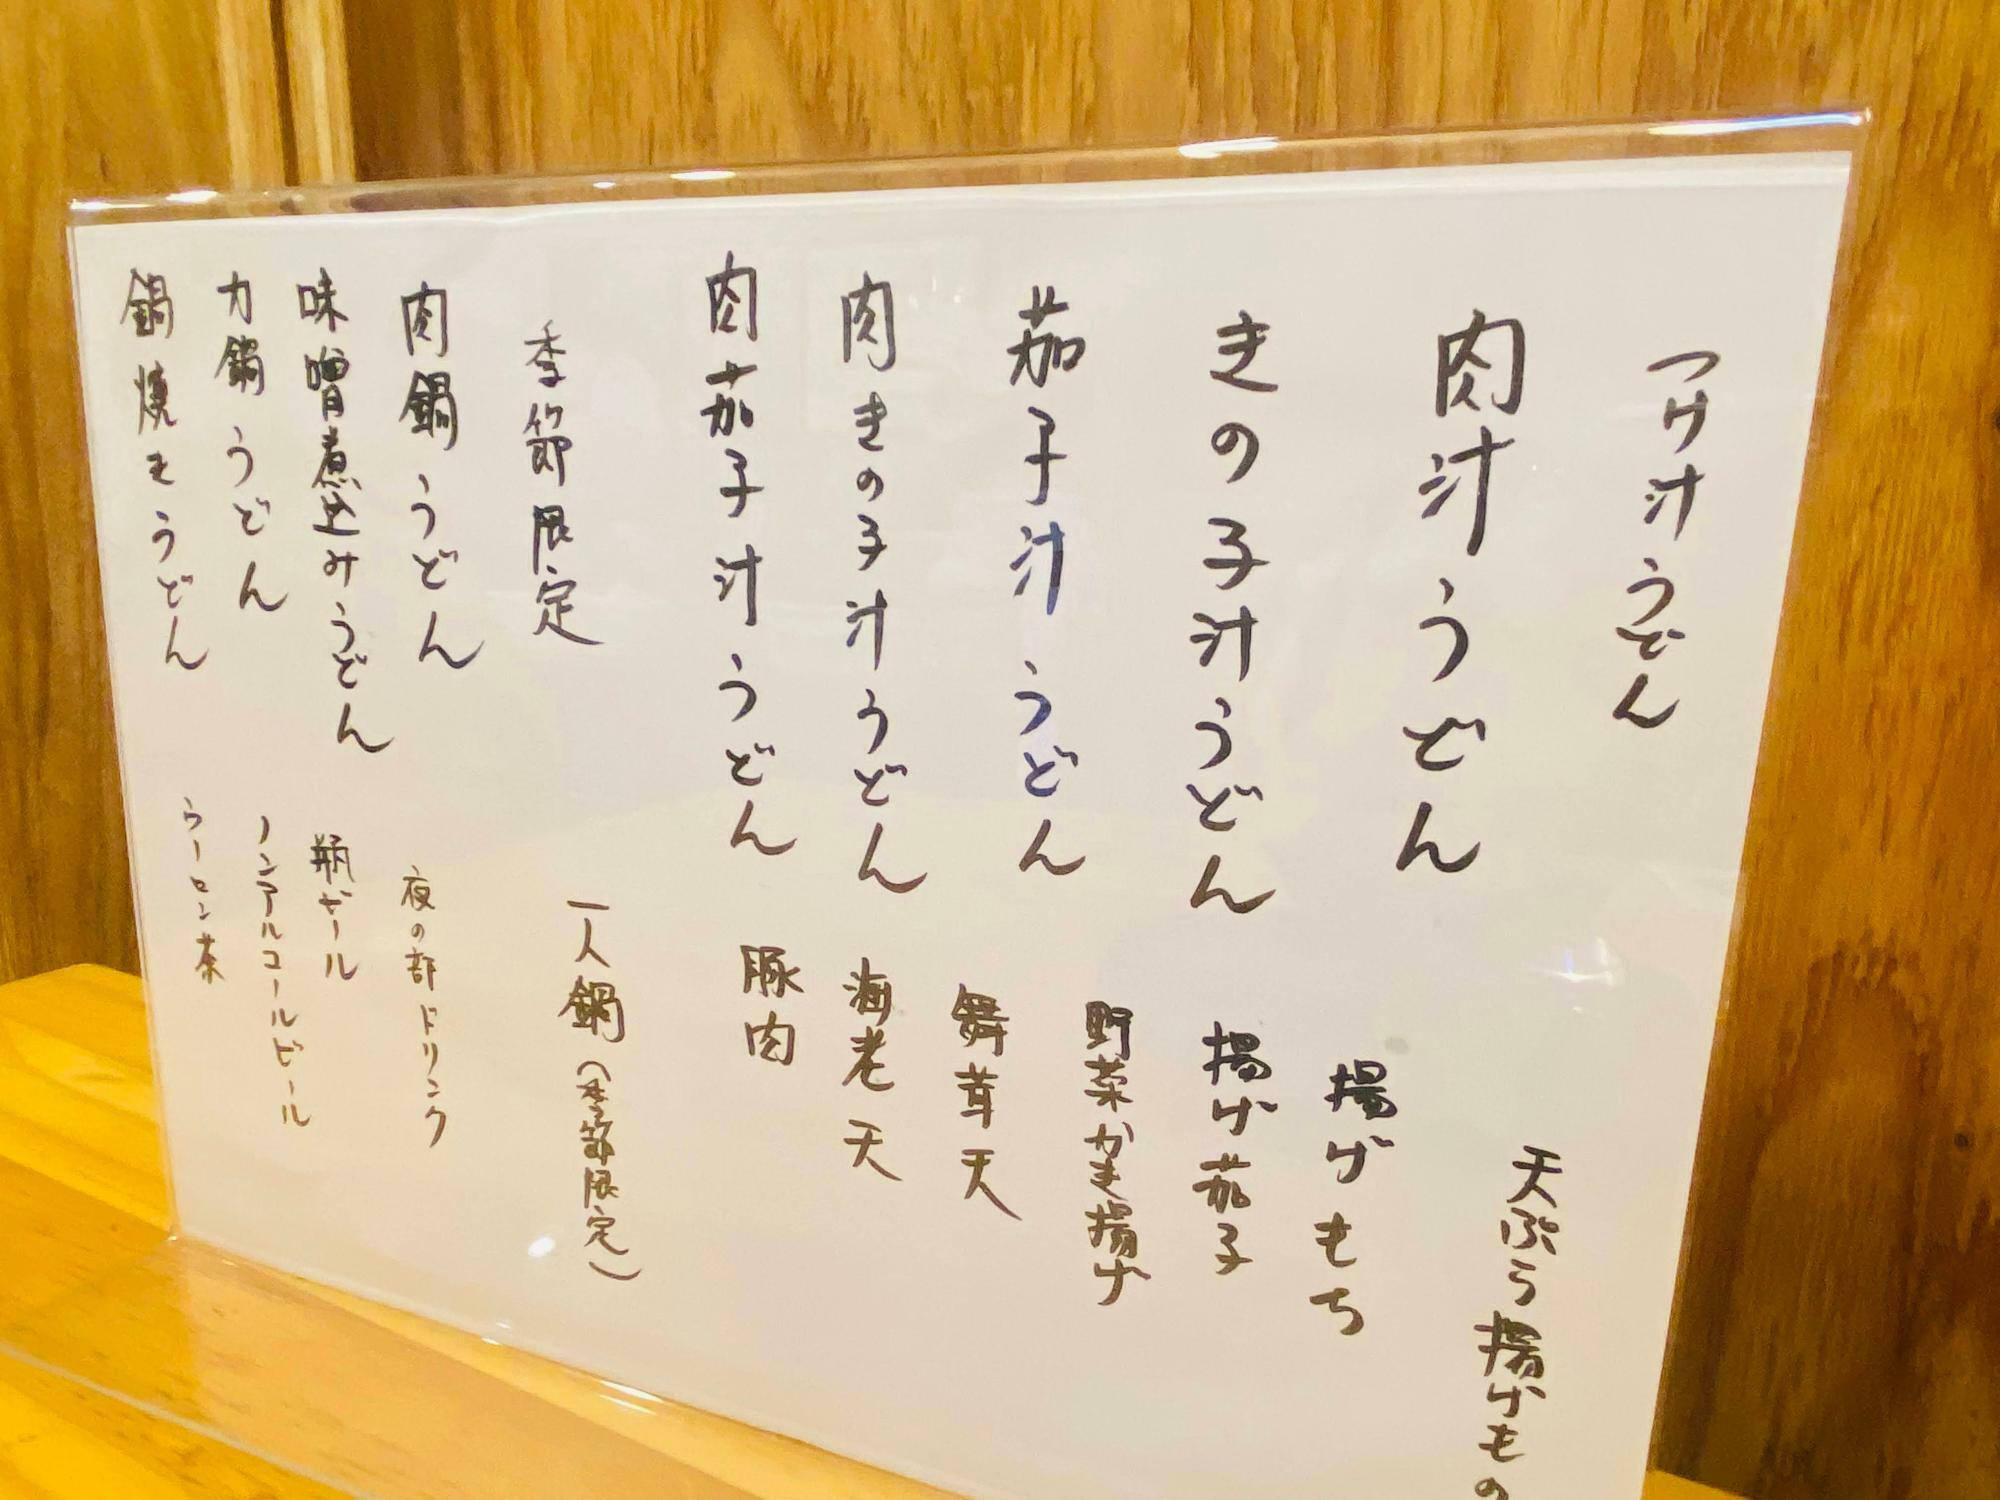 つけ汁うどん
肉汁うどん
きの子汁うどん
茄子汁うどん
肉きの子汁うどん
肉茄子汁うどん
季節限定
肉鍋うどん
味噌煮込みうどん
力鍋うどん
鍋焼きうどん
天ぷら揚げもの
揚げもち
揚げ茄子
野菜かき揚げ
舞茸天
海老天
豚肉
一人鍋(季節限定)
夜の部ドリンク
瓶ビール
ノンアルコールビール
ウーロン茶